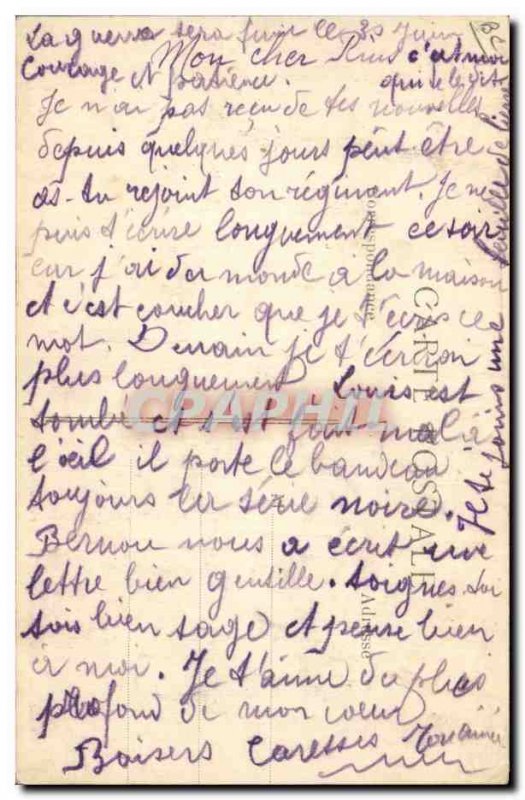 La guerre sera finie le 30 Juin
Mon cher c'est moi
Courage et patience. qui te le dit
Je n'ai pas reçu de tes nouvelles
depuis quelques jours peut être
as-tu rejoint ton régiment. Je ne
puis t'écrire longuement ce soir
car j'ai du monde à la maison
et c'est coucher que je t'écris ce
mot. Demain je t'écrirai
plus longuement Louis est
tombé et s'est fait mal à
l'œil il porte le bandeau
toujours la série noire.
Bernou nous a écrit une
lettre bien gentille. Soignes toi
sois bien sage et pense bien
à moi. Je t'aime du plus
profond de mon cœur
Baisers Caresses
Je te joins une feuille de lierre
CARTE POSTALE
Correspondance
Adresse
CPAPHIL